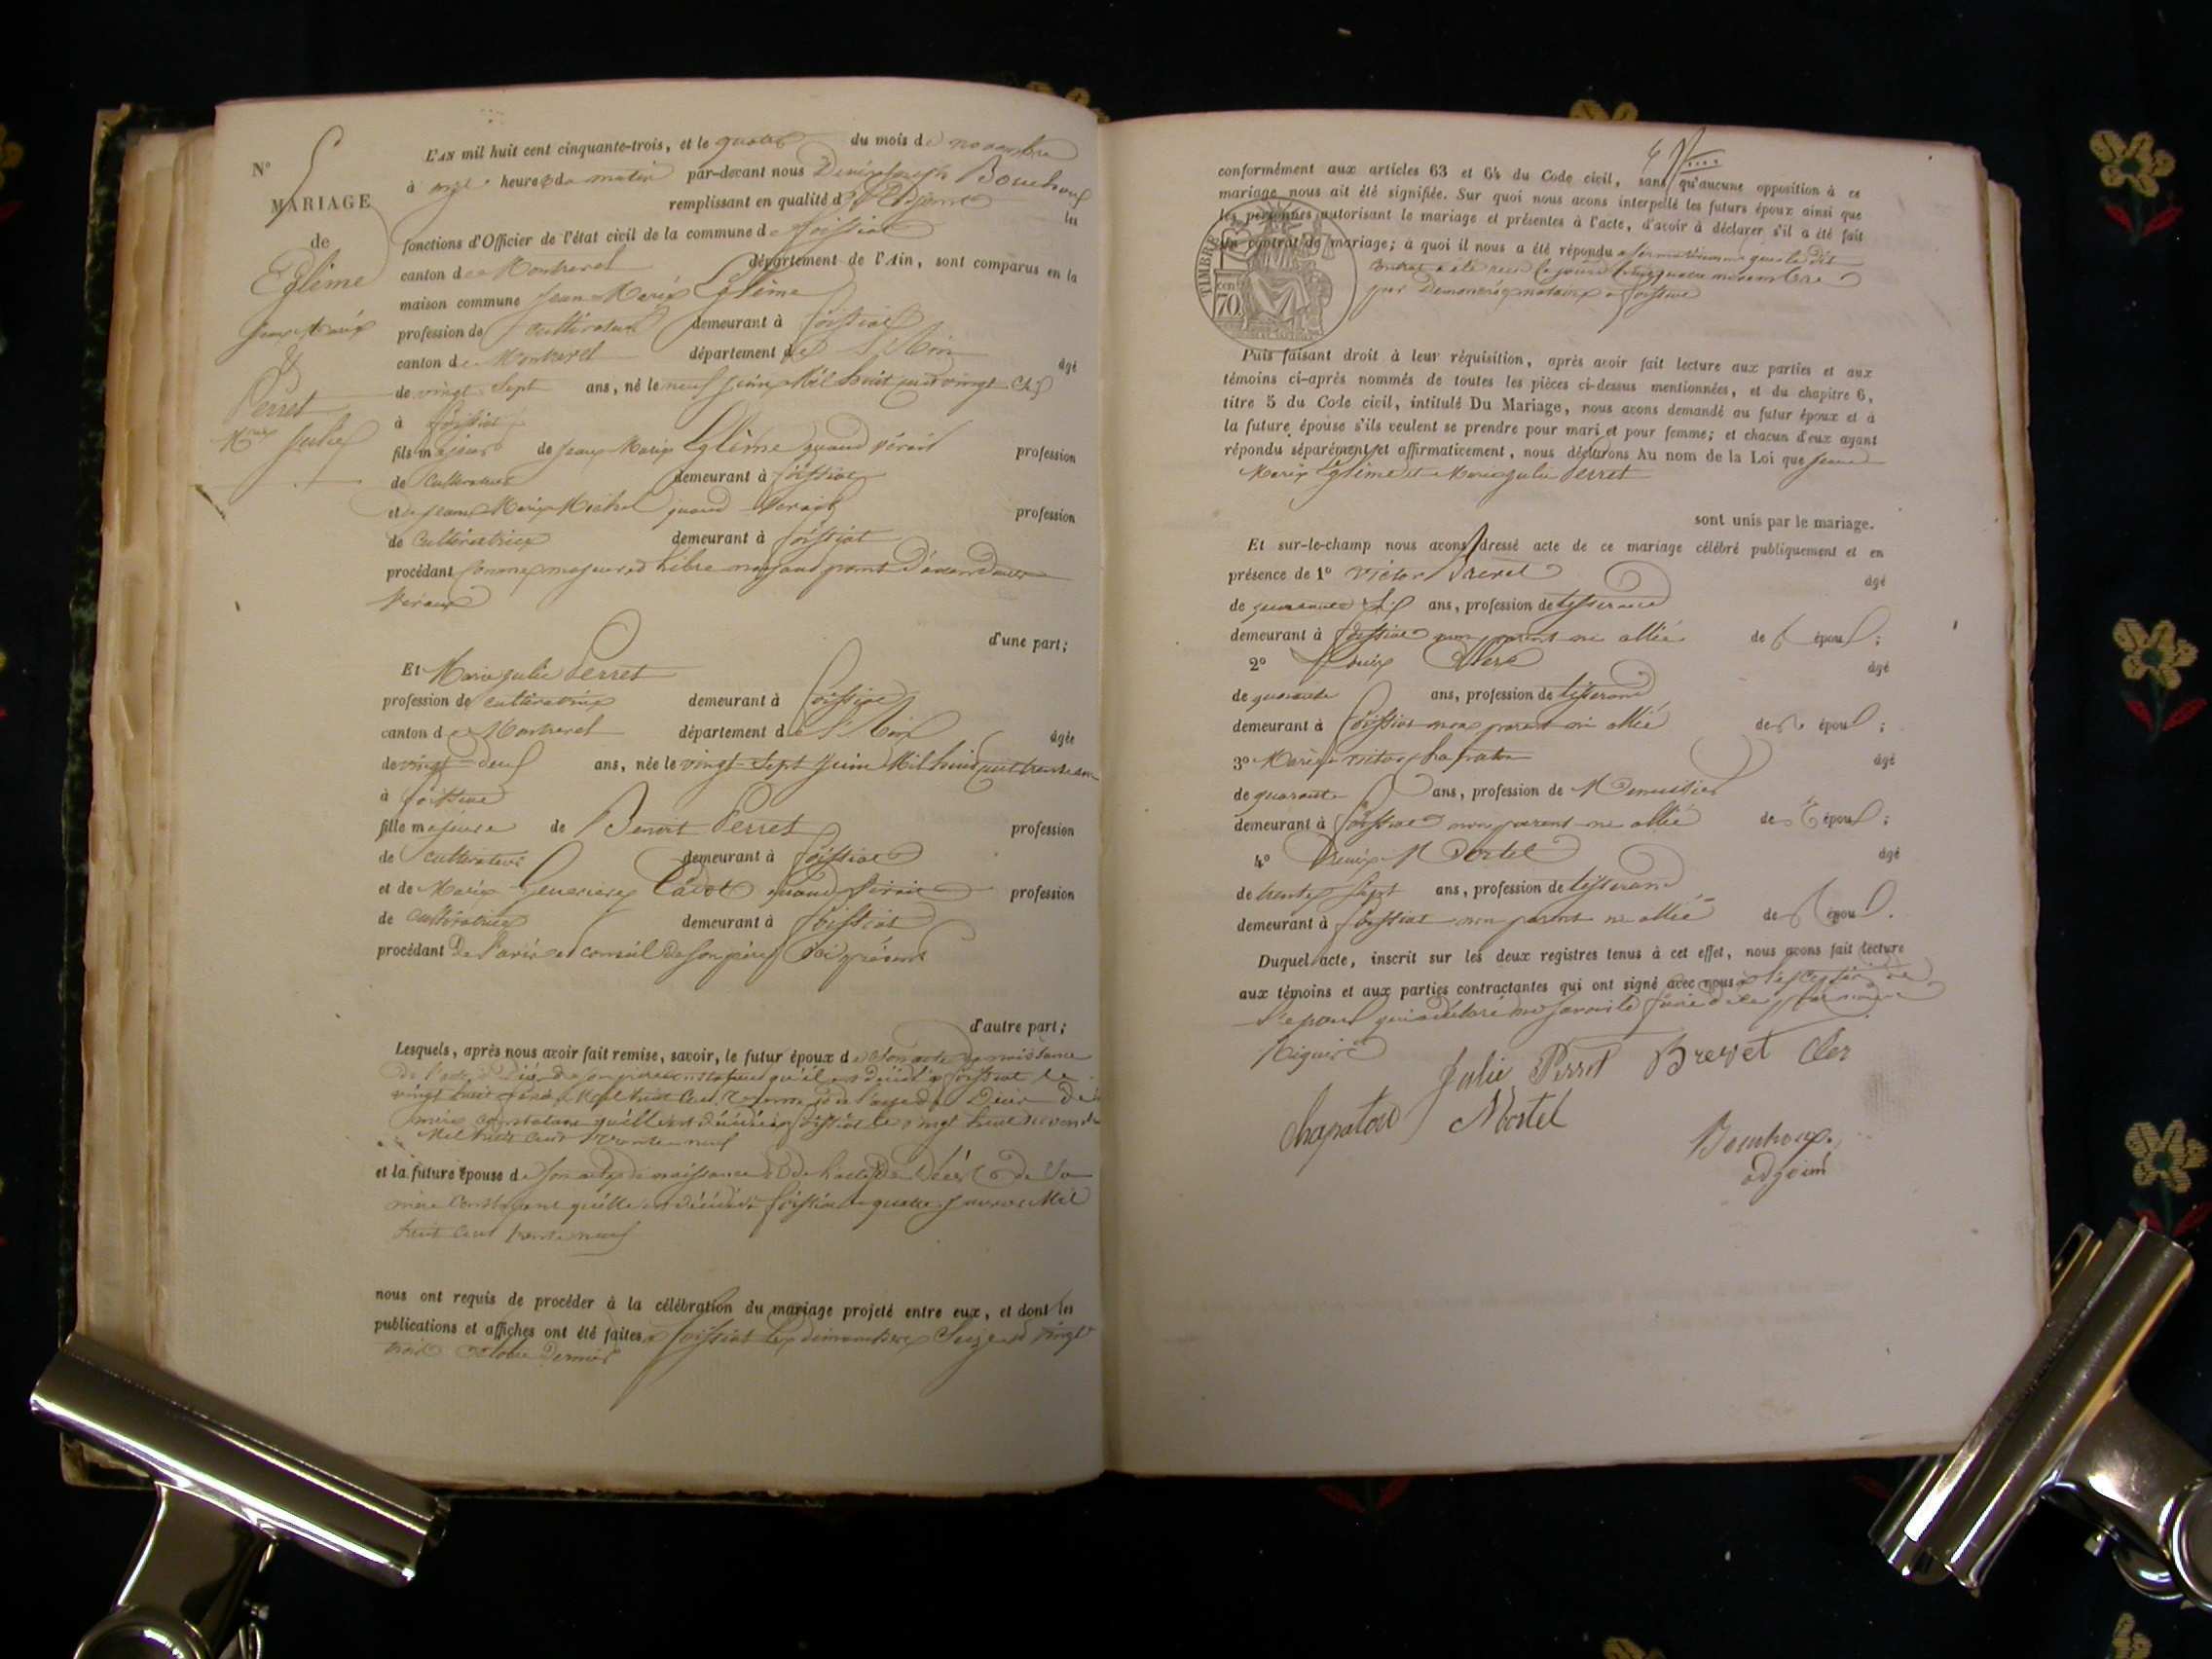 N° 5
MARIAGE
de
Eglème
Jean Marie
&
Perret
Mie Julie
L'AN mil huit cent cinquante-trois, et le quatre du mois de novembre
à onze heures du matin par-devant nous Denis Joseph Bouchoux
remplissant en qualité d'adjoint les
fonctions d'Officier de l'état civil de la commune de foissiat
canton de Montrevel département de l'Ain, sont comparus en la
maison commune Jean Marie Eglème
profession de cultivateur demeurant à foissiat
canton de Montrevel département de l'Ain âgé
de vingt Sept ans, né le neuf juin Mil huit cent vingt Six
à foissiat
fils majeur de Jean Marie Eglème quand vivait profession
de Cultivateur demeurant à foissiat
et de Jeanne Marie Michel quand vivait profession
de Cultivatrice demeurant à foissiat
procédant comme majeur et libre n'ayant point d'ascendants
d'une part;
Et Marie Julie Perret
profession de cultivatrice demeurant à foissiat
canton de Montrevel département de l'Ain âgée
de vingt deux ans, née le vingt Sept juin Mil huit cent trente un
à foissiat
fille majeure de Benoit Perret profession
de cultivateur demeurant à foissiat
et de Marie Genevieve Cadot quand vivait profession
de cultivatrice demeurant à foissiat
procédant De l'avis et conseil de son père ici présent
d'autre part;
Lesquels, après nous avoir fait remise, savoir, le futur époux de Son acte de naissance
De l'acte de Décès de son père constatant qu'il est décédé à foissiat le
vingt huit Mil huit Cent et de l'acte de Décès de sa
mère constatant qu'elle est décédée à foissiat le vingt
Mil huit Cent neuf
et la future épouse de Son acte de naissance et de l'acte de Décès de Sa
mère Constatant qu'elle est décédée à foissiat le quatre Mil
huit Cent trente neuf
nous ont requis de procéder à la célébration du mariage projeté entre eux, et dont les
publications et affiches ont été faites à foissiat les dimanches Seize et vingt
trois octobre Dernier
conformément aux articles 63 et 64 du Code civil, sans qu'aucune opposition à ce
mariage nous ait été signifiée. Sur quoi nous avons interpellé les futurs époux ainsi que
les personnes autorisant le mariage et présentes à l'acte, d'avoir à déclarer s'il a été fait
un contrat de mariage; à quoi il nous a été répondu affirmativement que le dit
contrat a été reçu quatre novembre
par notaire à foissiat
TIMBRE
70
Puis faisant droit à leur réquisition, après avoir fait lecture aux parties et aux
témoins ci-après nommés de toutes les pièces ci-dessus mentionnées, et du chapitre 6,
titre 5 du Code civil, intitulé Du Mariage, nous avons demandé au futur époux et à
la future épouse s'ils veulent se prendre pour mari et pour femme; et chacun d'eux ayant
répondu séparément et affirmativement, nous déclarons Au nom de la Loi que Jean
Marie Eglème et Marie Julie Perret
sont unis par le mariage.
Et sur-le-champ nous avons dressé acte de ce mariage célébré publiquement et en
présence de 1° Victor Brevet âgé
de quarante Six ans, profession de tisserand
demeurant à foissiat non parent ni allié de l'époux;
2° âgé
de quarante ans, profession de tisserand
demeurant à foissiat non parent ni allié de l'époux;
3° Marie Victor Chapaton âgé
de quarante ans, profession de Menuisier
demeurant à foissiat non parent ni allié de l'époux;
4° Denis Mortel âgé
de trente Sept ans, profession de tisserand
demeurant à foissiat non parent ni allié de l'époux.
Duquel acte, inscrit sur les deux registres tenus à cet effet, nous avons fait lecture
aux témoins et aux parties contractantes qui ont signé avec nous à l'exception de
l'epoux qui a déclaré ne savoir le faire de ce
requis
Julie Perret Brevet Cler
Chapaton Mortel
Bouchoux
adjoint